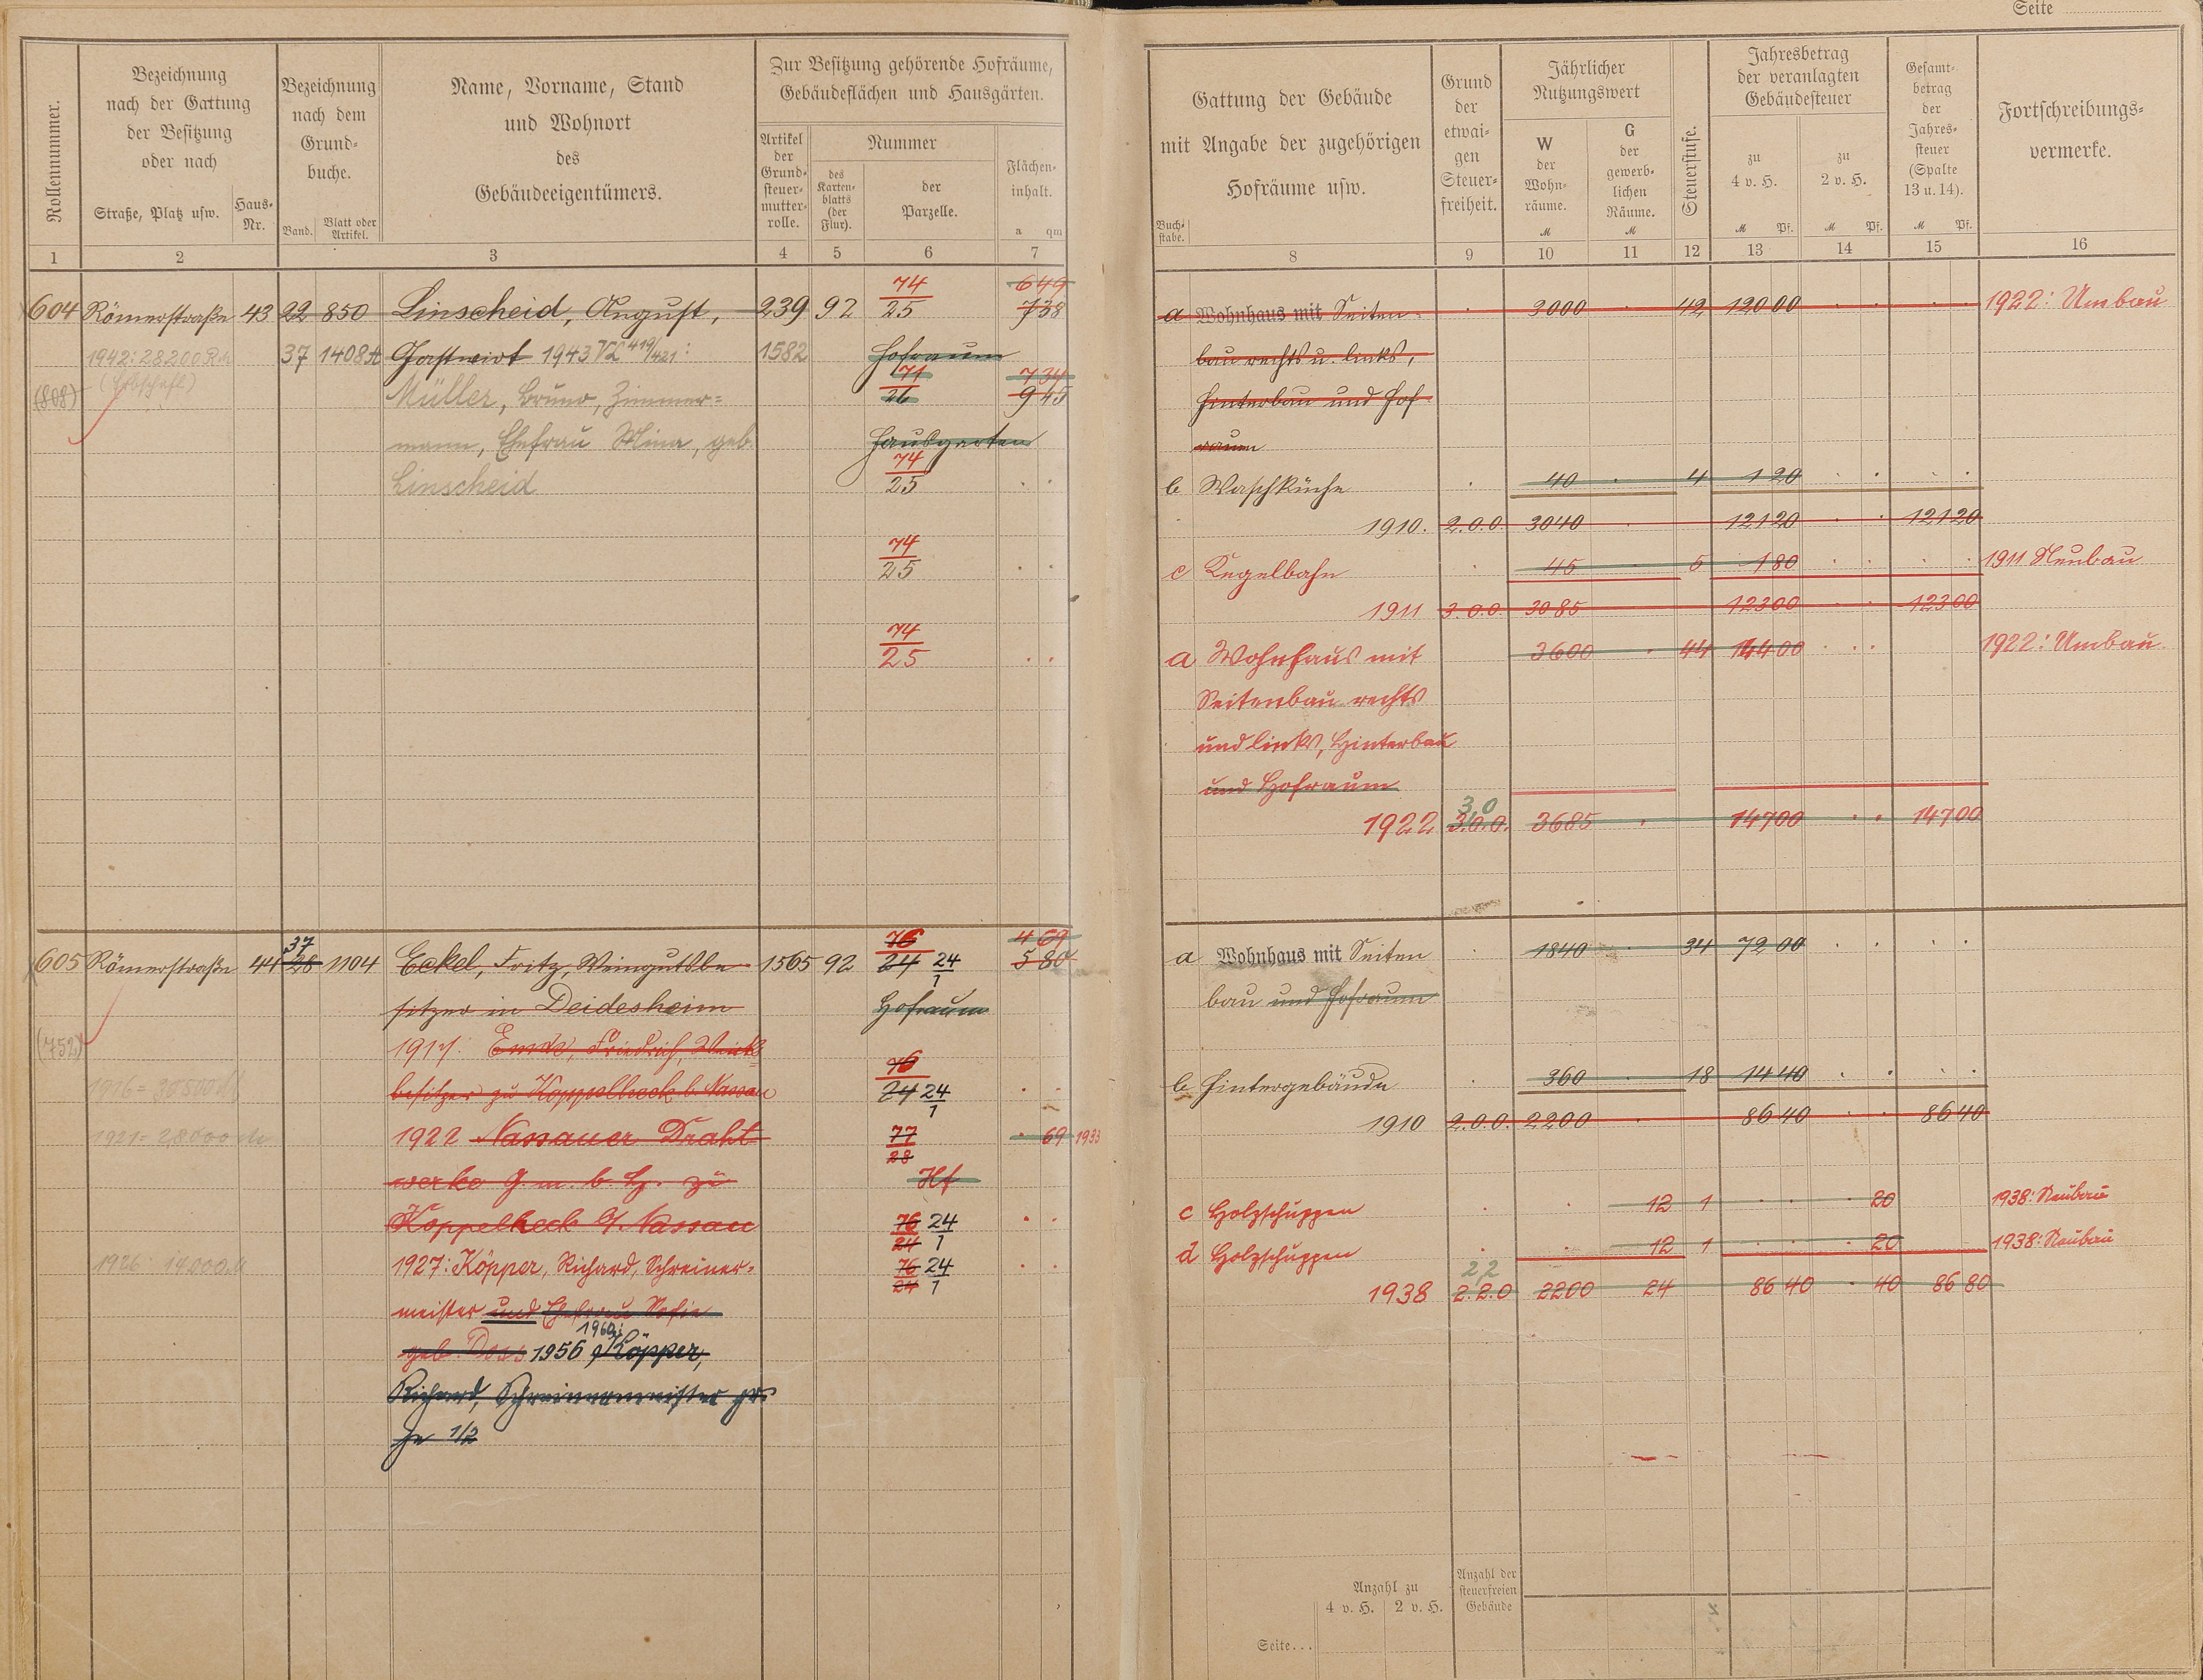 Seite
Rollennummer.
Bezeichnung
nach der Gattung
der Besitzung
oder nach
Straße, Platz usw.
Haus-
Nr.
Bezeichnung
nach dem
Grund-
buche.
Band.
Blatt oder
Artikel.
Name, Vorname, Stand
und Wohnort
des
Gebäudeeigentümers.
Zur Besitzung gehörende Hofräume,
Gebäudeflächen und Hausgärten.
Artikel
der
Grund-
steuer-
mutter-
rolle.
Nummer
des
Karten-
blatts
(der
Flur).
der
Parzelle.
Flächen-
inhalt.
a qm
1 2 3 4 5 6 7
604 Römerstraße 43 22 850 Linscheid, August, 239 92 74/25 649 738
1942: 28200 RM 37 1408A Gastwirt 1943 VL 419/421: 1582 Hofraum
(Erbschaft) 71/26 734 945
(808) Müller, Bruno, Zimmer=
mann, Ehefrau Mina, geb. Hausgarten
Linscheid 74/25
74/25
74/25
605 Römerstraße 44 37 28 1104 Eckel, Fritz, Weingutsbe- 1565 92 76/24 24/1 469 580
sitzer in Deidesheim Hofraum
(752) 1917: Friedrich
besitzer zu b. Nassau 76/24 24/1
1921 = 28000 M 1922 Nassauer Draht- 77/28 69 1933
werke G. m. b. H. zu Hf
Koppelheck b/. Nassau 76/24 24/1
1926: 14000 M 1927: Köpper, Richard, Schreiner- 76/24 24/1
meister und Ehefrau Sofie
geb. Doss 1956 1960: Köpper,
Richard, Schreinermeister zu
je 1/2
Buch-
stabe.
Gattung der Gebäude
mit Angabe der zugehörigen
Hofräume usw.
Grund
der
etwai-
gen
Steuer-
freiheit.
Jährlicher
Nutzungswert
W
der
Wohn-
räume.
M
G
der
gewerb-
lichen
Räume.
M
Steuerstufe.
Jahresbetrag
der veranlagten
Gebäudesteuer
zu
4 v. H.
M Pf.
zu
2 v. H.
M Pf.
Gesamt-
betrag
der
Jahres-
steuer
(Spalte
13 u. 14).
M Pf.
Fortschreibungs-
vermerke.
8 9 10 11 12 13 14 15 16
a Wohnhaus mit Seiten- 3000 42 120 00 1922: Umbau
bau rechts u. links,
Hinterbau und Hof-
raum
b Waschküche 40 4 1 20
1910. 2.0.0. 3040 121 20 121 20
c Kegelbahn 45 5 1 80 1911 Neubau
1911 3.0.0. 3085 123 00 123 00
a Wohnhaus mit 3600 44 144 00 1922: Umbau
Seitenbau rechts
und links, Hinterbau
und Hofraum
3.0
1922 3.0.0. 3685 147 00 147 00
a Wohnhaus mit Seiten 1840 34 72 00
bau und Hofraum
b Hintergebäude 360 18 14 40
1910 2.0.0. 2200 86 40 86 40
c Holzschuppen 12 1 20 1938: Neubau
d Holzschuppen 12 1 20 1938: Neubau
2,2
1938 2.2.0 2200 24 86 40 40 86 80
Anzahl zu
4 v. H. 2 v. H.
Anzahl der
steuerfreien
Gebäude
Seite...